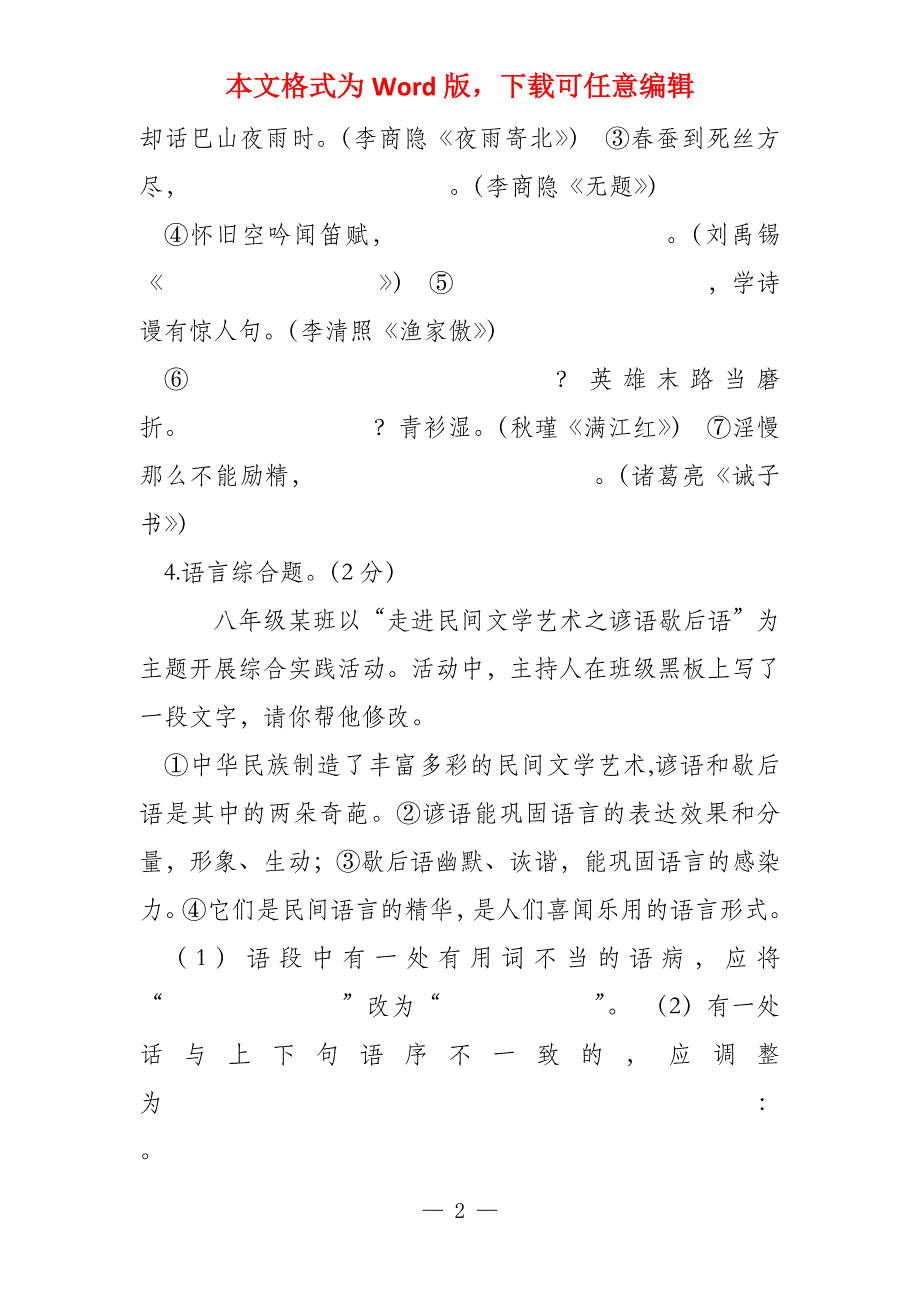 本文格式为 Word 版，下载可任意编辑
却话巴山夜雨时。(李商隐《夜雨寄北》) ③春蚕到死丝方
尽， 。(李商隐《无题》)
④怀旧空吟闻笛赋， 。(刘禹锡
《 》) ⑤ ，学诗
谩有惊人句。(李清照《渔家傲》)
⑥ ？英雄末路当磨
折。 ？青衫湿。(秋瑾《满江红》) ⑦淫慢
那么不能励精， 。(诸葛亮《诫子
书》)
4.语言综合题。(2 分)
八年级某班以“走进民间文学艺术之谚语歇后语”为
主题开展综合实践活动。活动中，主持人在班级黑板上写了
一段文字，请你帮他修改。
①中华民族制造了丰富多彩的民间文学艺术,谚语和歇后
语是其中的两朵奇葩。②谚语能巩固语言的表达效果和分
量，形象、生动；③歇后语幽默、诙谐，能巩固语言的感染
力。④它们是民间语言的精华，是人们喜闻乐用的语言形式。
(1) 语段中有一处有用词不当的语病，应将
“ ”改为“ ”。 (2) 有一处
话与上下句语序不一致的，应调整
为 ：
。
— 2 —